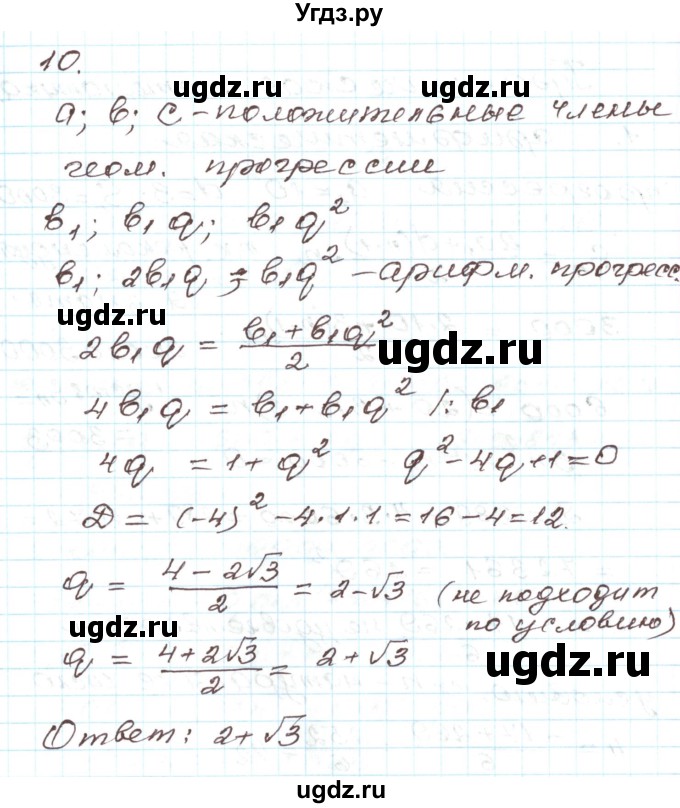 Угдз.ру
10.
ugdz.ru ugdz.ru
a; b; c - положительные члены
геом. прогрессии
b₁; b₁q; b₁q²
b₁; 2b₁q; b₁q² - арифм. прогресс.
ugdz.ru
2b₁q = (b₁+b₁q²)/2
ugdz.ru
4b₁q = b₁+b₁q² /: b₁
4q = 1+q² q²-4q+1=0
D = (-4)²-4·1·1=16-4=12.
q = (4-2√3)/2 = 2-√3 (не подходит
по условию)
ugdz.ru
q = (4+2√3)/2 = 2+√3
ugdz.ru
Ответ: 2+√3
ugdz.ru